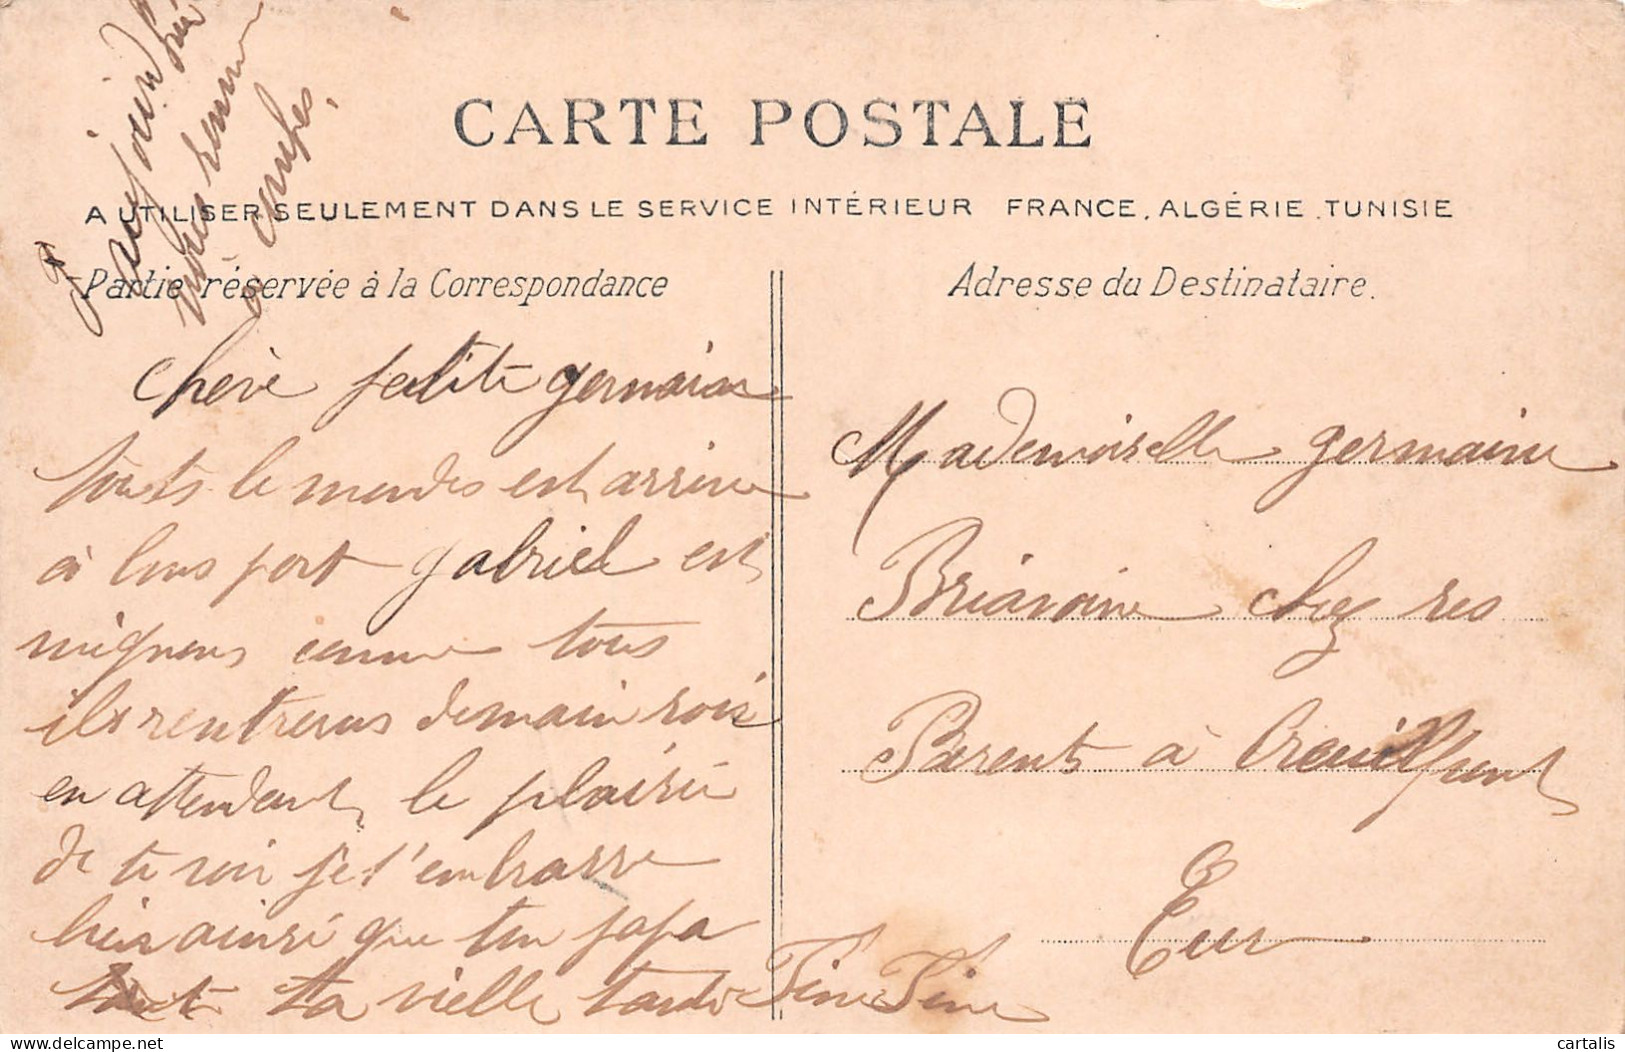 aujourd'hui
nous sommes
a
CARTE POSTALE
A UTILISER SEULEMENT DANS LE SERVICE INTÉRIEUR FRANCE, ALGÉRIE, TUNISIE
Partie réservée à la Correspondance
Adresse du Destinataire.
chère petite germaine
touts le mondes est arrive
à bons port gabriel est
mignons comme tous
ils rentrerons demain soir
en attendant le plaisir
de te voir je t'embrasse
bien ainsi que ton papa
ta vielle tante Fine Fine
Mademoiselle germaine
chez ses
Parents à
Eur
cartalis